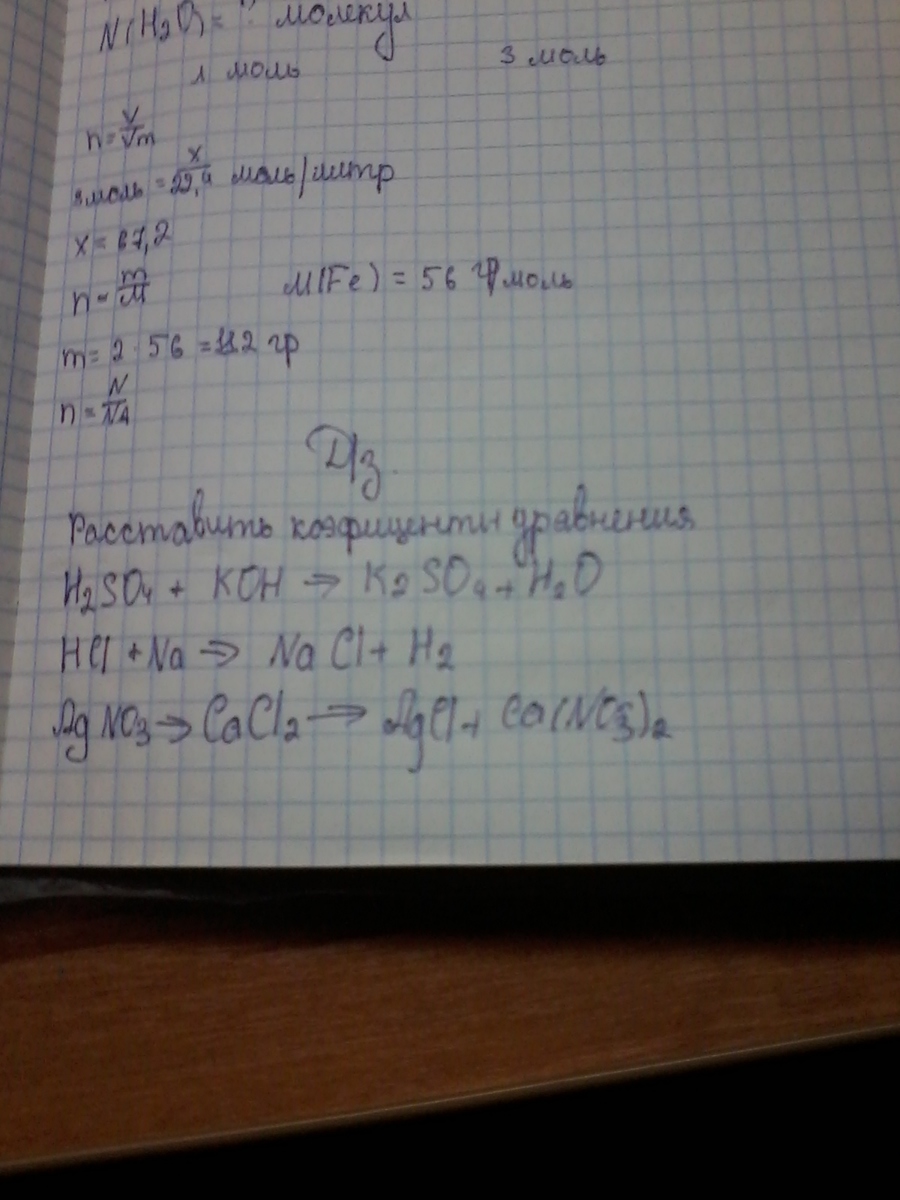 N(H₂O) = ? молекул
1 моль 3 моль
n = V/Vm
3 моль = x/22,4 моль/литр
x = 67,2
n = m/M M(Fe) = 56 гр/моль
m = 2 · 56 = 112 гр
n = N/NA
Д/з.
Расставить коэфиценты уравнения
H₂SO₄ + KOH → K₂SO₄ + H₂O
HCl + Na → NaCl + H₂
AgNO₃ → CaCl₂ → AgCl + Ca(NO₃)₂